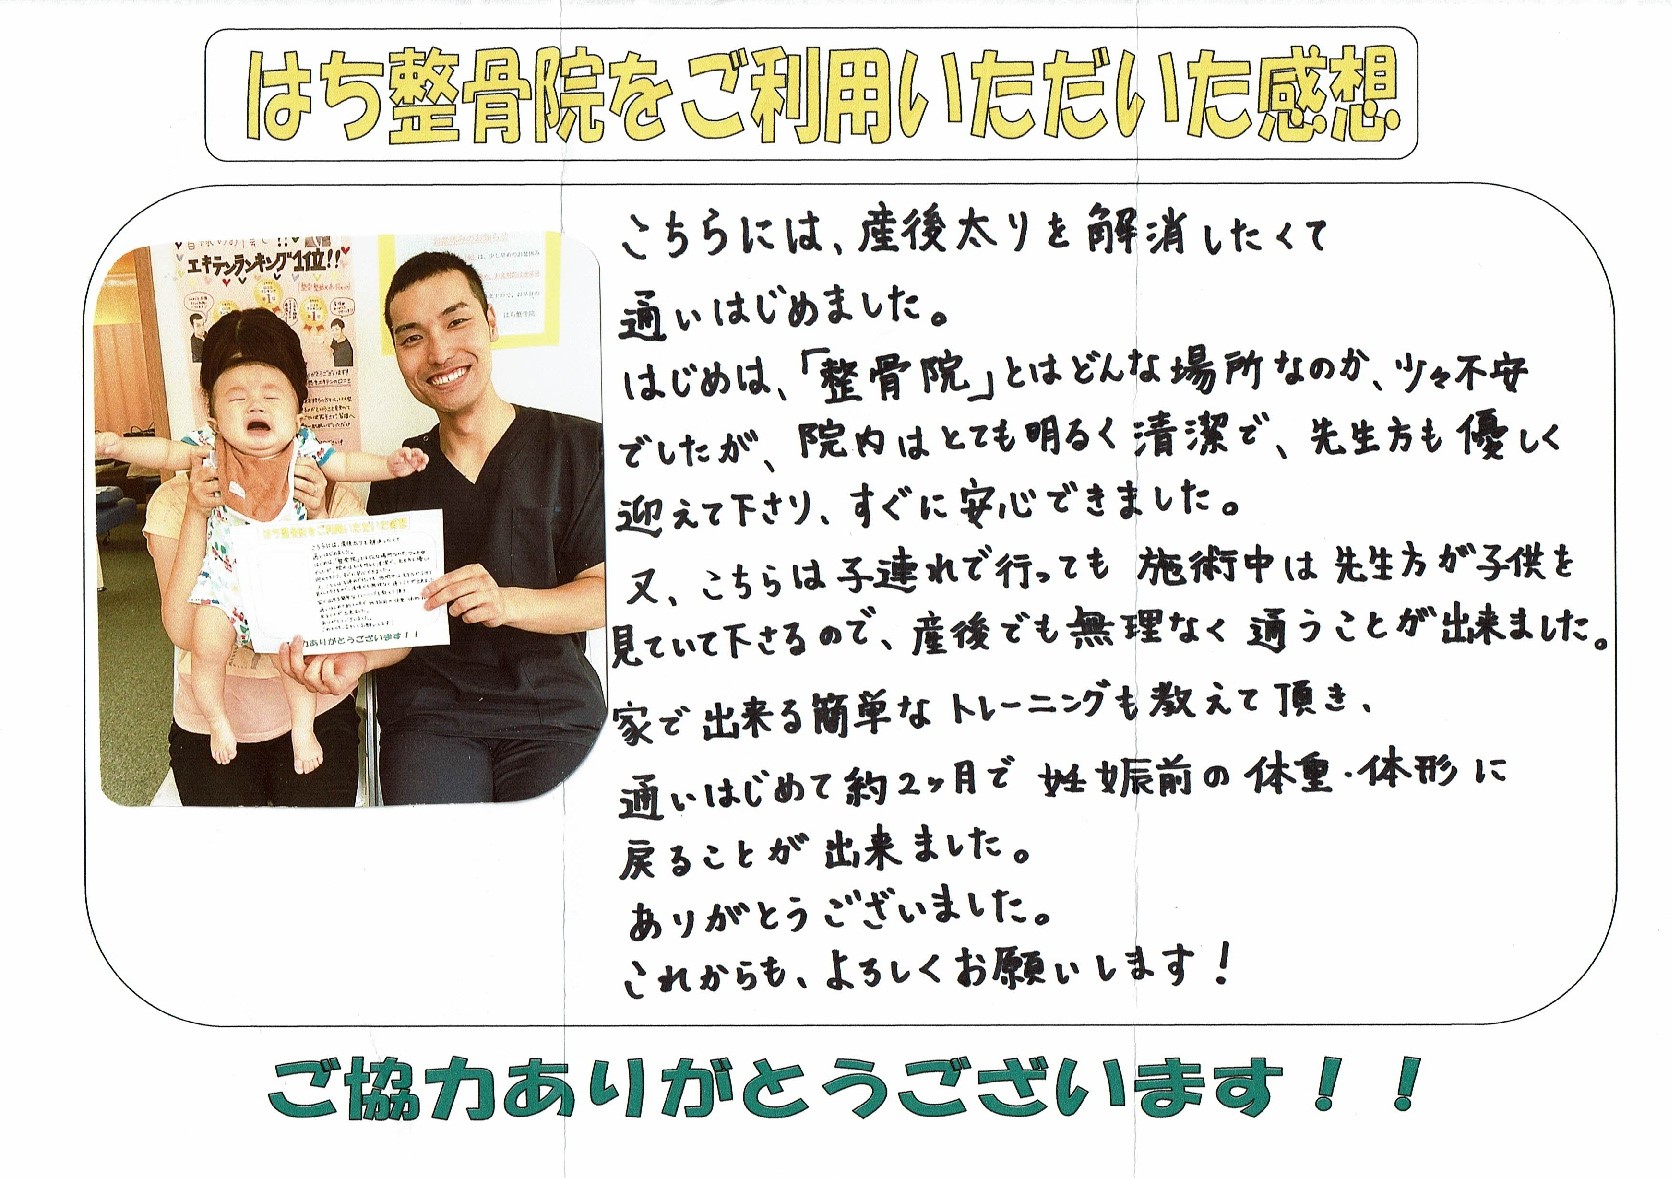 はち整骨院をご利用いただいた感想
こちらには、産後太りを解消したくて
通いはじめました。
はじめは、「整骨院」とはどんな場所なのか、少々不安
でしたが、院内はとても明るく清潔で、先生方も優しく
迎えて下さり、すぐに安心できました。
又、こちらは子連れで行っても施術中は先生方が子供を
見ていて下さるので、産後でも無理なく通うことが出来ました。
家で出来る簡単なトレーニングも教えて頂き、
通いはじめて約2ヶ月で妊娠前の体重・体形に
戻ることが出来ました。
ありがとうございました。
これからも、よろしくお願いします！
エキテンランキング1位!!
はち整骨院
はち整骨院をご利用いただいた感想
ご協力ありがとうございます！！